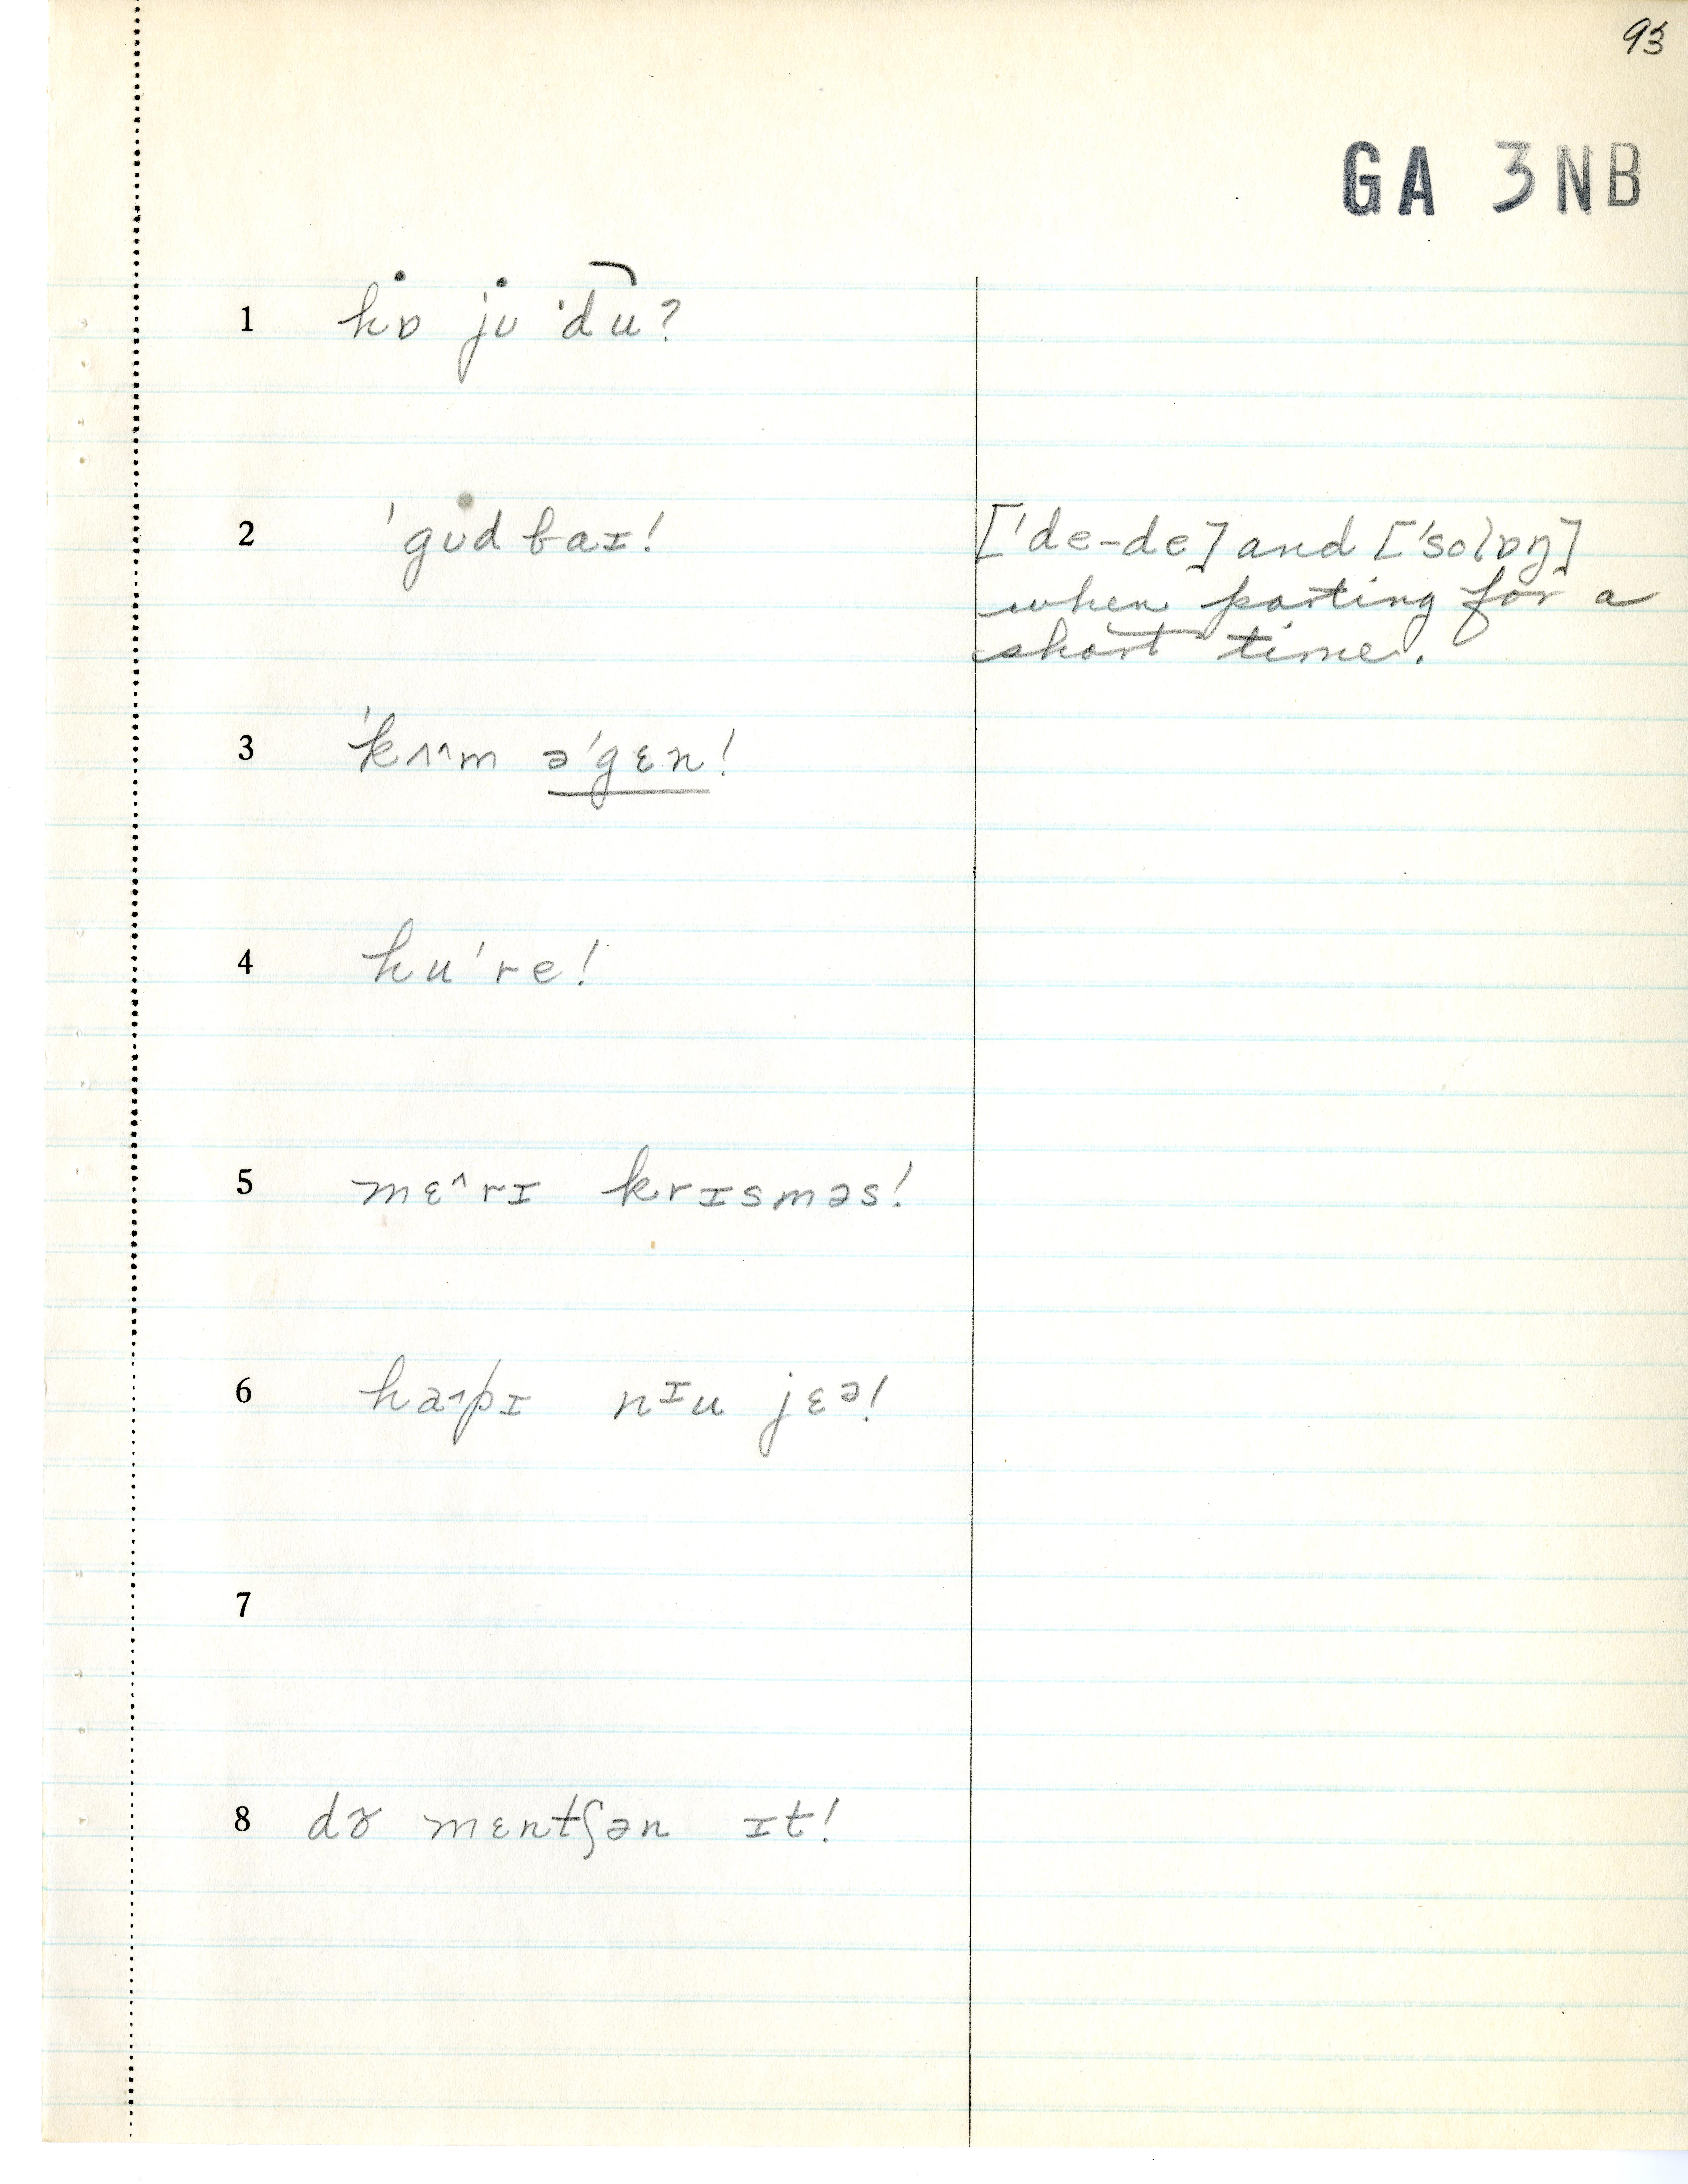 93
GA 3NB
1 hɒ jʊ 'du?
2 'gʊd baɪ!
['de-de] and ['solɒŋ]
when parting for a
short time.
3 'kʌ^m ə'gɛn!
4 hu're!
5 mɛ^rɪ krɪsməs!
6 ha˔pɪ nɪu jɛə!
7
8 dɤ mɛntʃən ɪt!